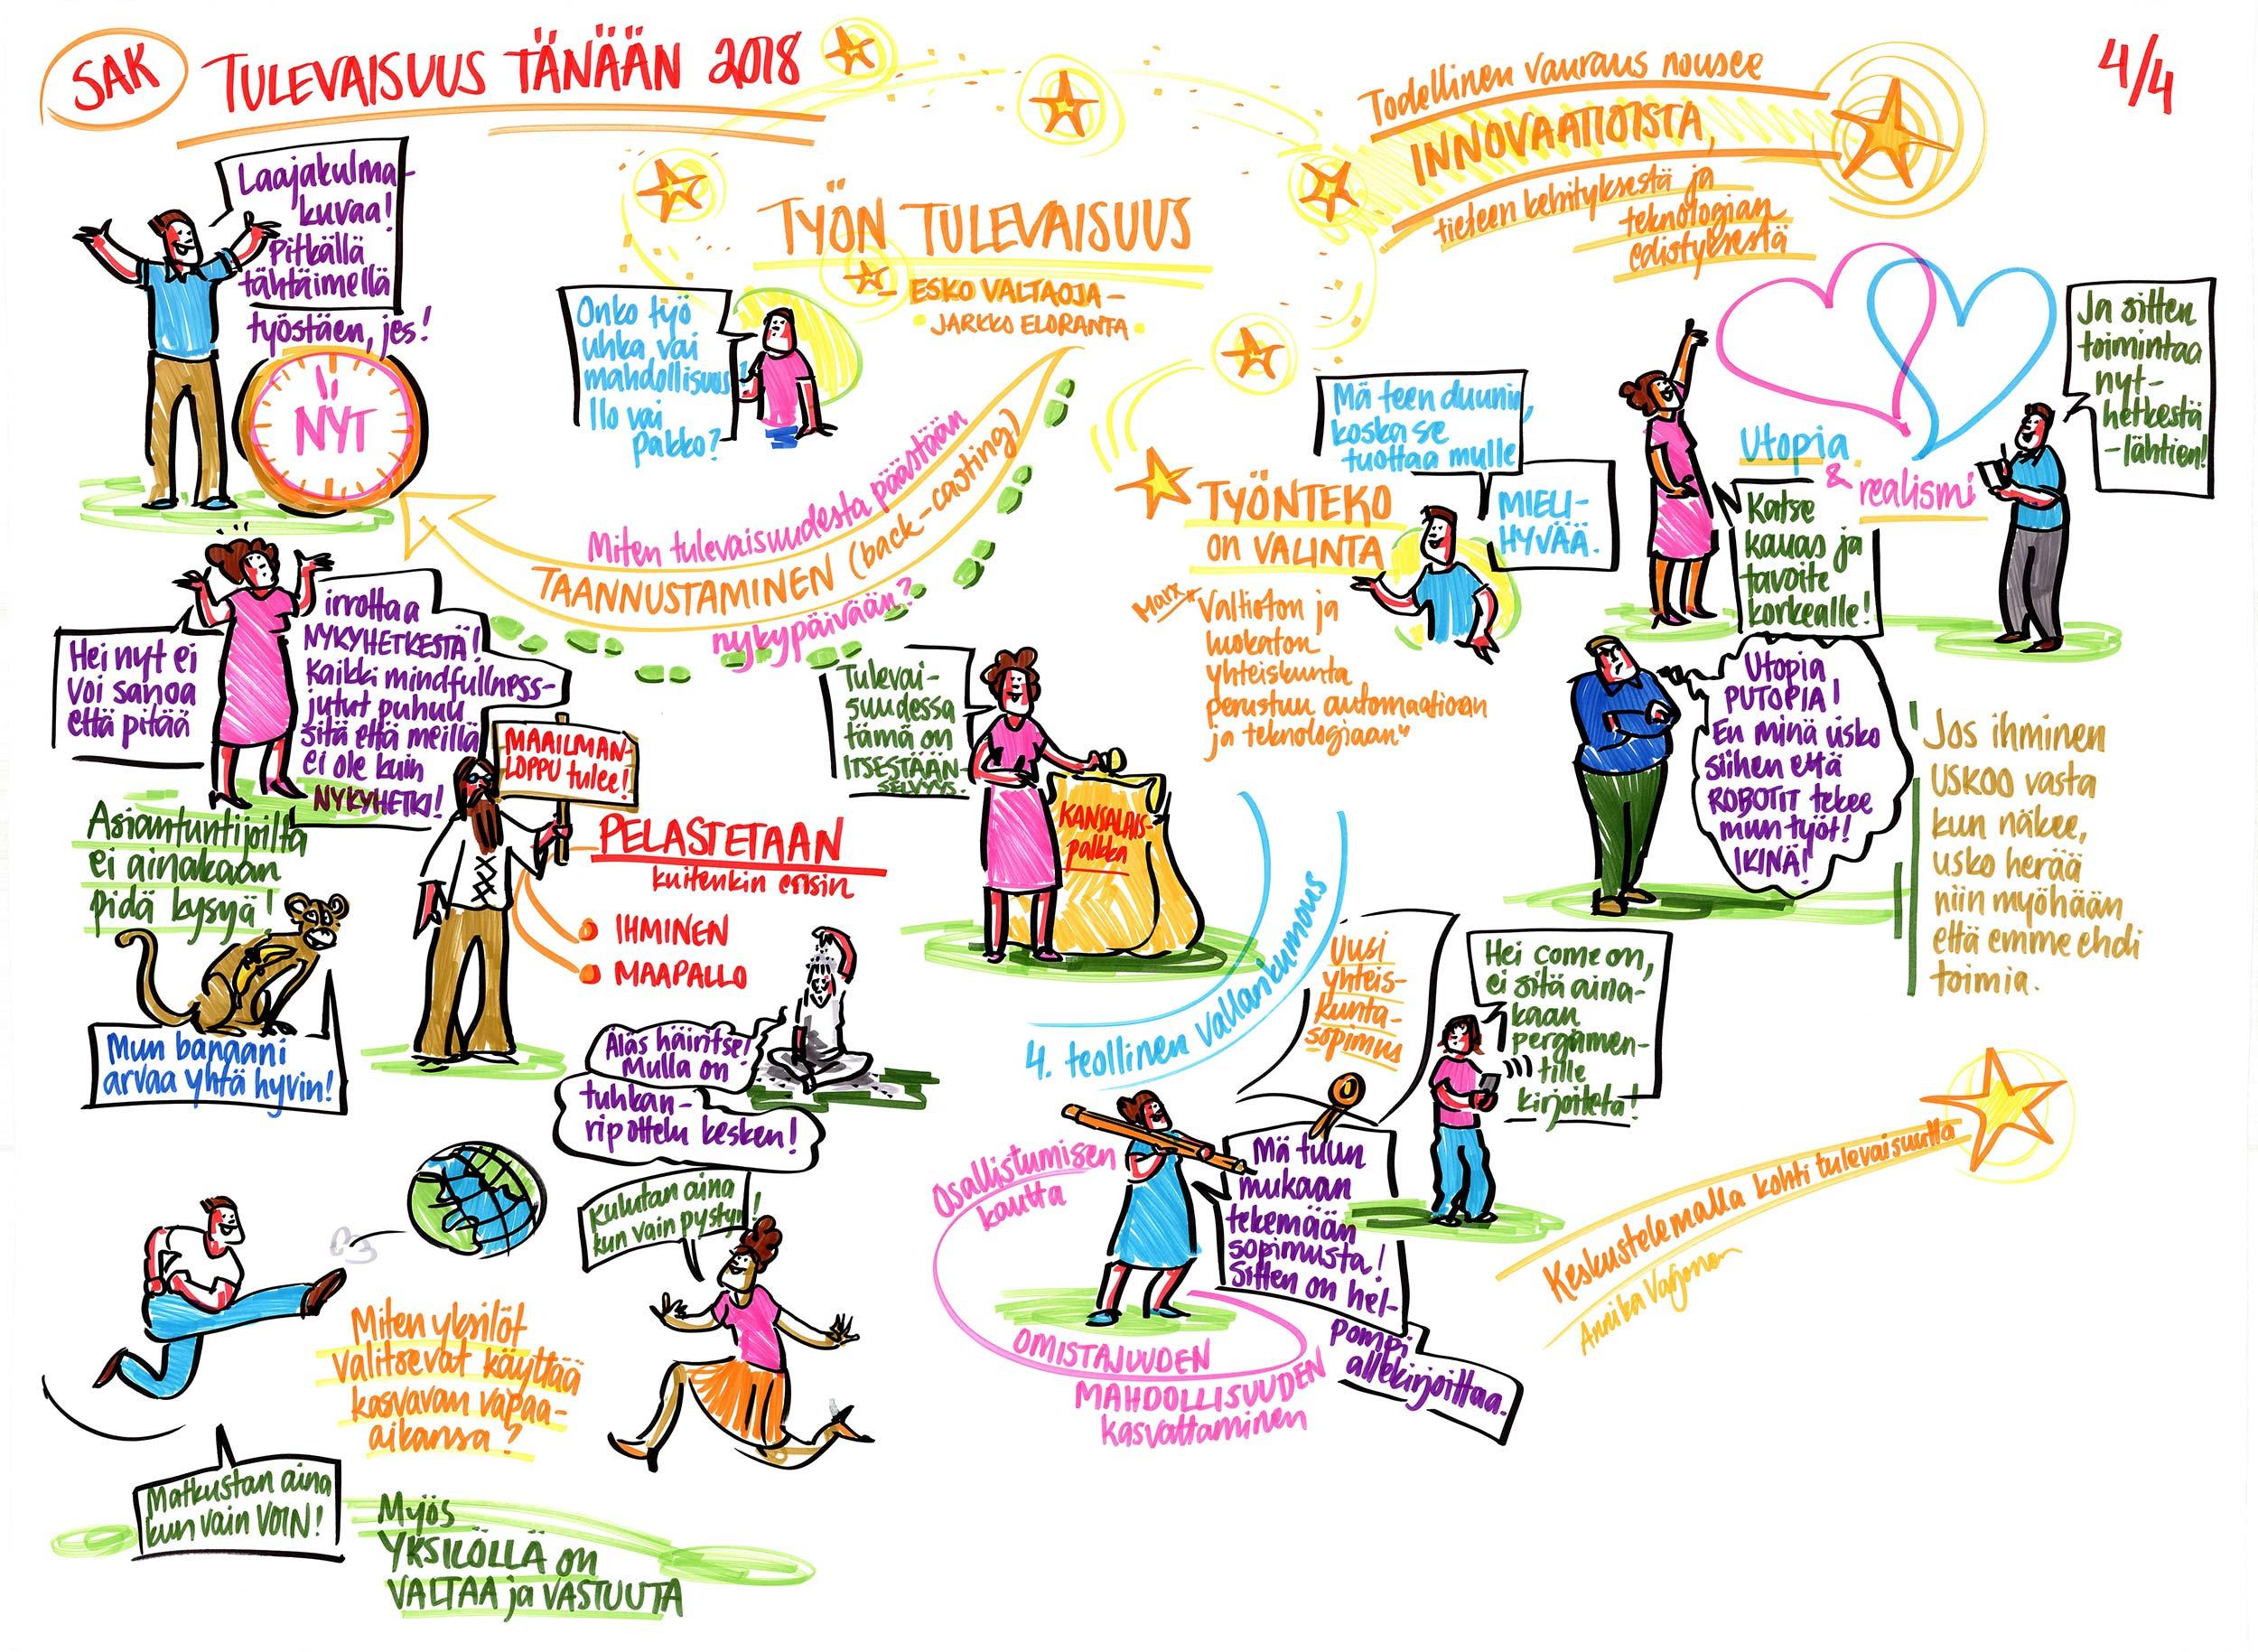 SAK
TULEVAISUUS TÄNÄÄN 2018
4/4
Laajakulma-
kuvaa!
Pitkällä
tähtäimellä
työstäen, jes!
NYT
TYÖN TULEVAISUUS
ESKO VALTAOJA -
JARKKO ELORANTA
Todellinen vauraus nousee
INNOVAATIOISTA,
tieteen kehityksestä ja
teknologian
edistyksestä
Onko työ
uhka vai
mahdollisuus
Ilo vai
pakko?
Miten tulevaisuudesta päästään
TAANNUSTAMINEN (back-casting)
nykypäivään?
Hei nyt ei
voi sanoa
että pitää
irrottaa
NYKYHETKESTÄ!
Kaikki mindfullness-
jutut puhuu
sitä että meillä
ei ole kuin
NYKYHETKI!
Mä teen duunin,
koska se
tuottaa mulle
MIELI-
HYVÄÄ.
TYÖNTEKO
ON VALINTA
Marx
"Valtioton ja
luokaton
yhteiskunta
perustuu automaatioon
ja teknologiaan"
Utopia
& realismi
Katse
kauas ja
tavoite
korkealle!
Ja sitten
toimintaa
nyt-
hetkestä
-lähtien!
Utopia
PUTOPIA!
En minä usko
siihen että
ROBOTIT tekee
mun työt!
IKINÄ!
Jos ihminen
USKOO vasta
kun näkee,
usko herää
niin myöhään
että emme ehdi
toimia.
Tulevai-
suudessa
tämä on
ITSESTÄÄN-
SELVYYS.
KANSALAIS-
palkka
MAAILMAN-
LOPPU tulee!
PELASTETAAN
kuitenkin ensin
IHMINEN
MAAPALLO
Asiantuntijoilta
ei ainakaan
pidä kysyä!
Mun banaani
arvaa yhtä hyvin!
Äläs häiritse!
Mulla on
tuhkan-
ripottelu kesken!
4. teollinen vallankumous
Uusi
yhteis-
kunta-
sopimus
Hei come on,
ei sitä aina-
kaan
pergamen-
tille
kirjoiteta!
Osallistumisen
kautta
OMISTAJUUDEN
MAHDOLLISUUDEN
kasvattaminen
Mä tuun
mukaan
tekemään
sopimusta!
Sitten on hel-
pompi
allekirjoittaa.
Keskustelemalla kohti tulevaisuutta
Kulutan aina
kun vain pystyn!
Miten yksilöt
valitsevat käyttää
kasvavan vapaa-
aikansa?
Matkustan aina
kun vain VOIN!
Myös
YKSILÖLLÄ on
VALTAA ja VASTUUTA